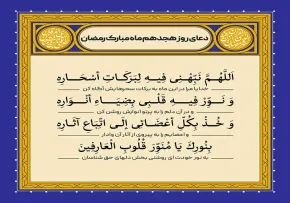 دعای روز هجدهم ماه مبارک رمضان
اَللّهُمَّ نَبِّهْنی فیهِ لِبَرَکاتِ اَسْحارِهِ
خدایا مرا در این ماه به برکات سحرهایش آگاه کن
وَ نَوِّرْ فیهِ قَلْبی بِضِیاءِ اَنْوارِهِ
و در آن دلم را به پرتو انوارش روشن کن
وَ خُذْ بِکُلِّ اَعْضائی اِلَی اتِّباعِ آثارِهِ
و اعضایم را به پیروی از آثار آن وادار
بِنُورِکَ یا مُنَوِّرَ قُلُوبِ الْعارِفینَ
به نور خودت ای روشنی بخش دلهای حق شناسان